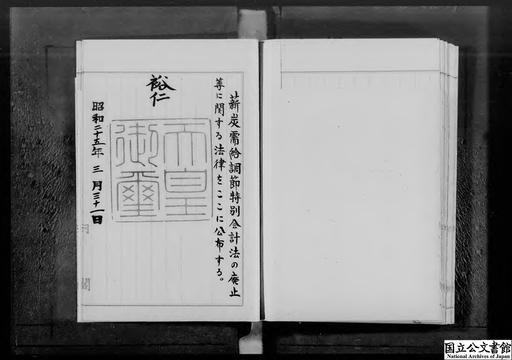 薪炭需給調節特別会計法の廃止
等に関する法律をここに公布する。
裕仁
天皇
御璽
昭和二十五年三月三十一日
国立公文書館
National Archives of Japan